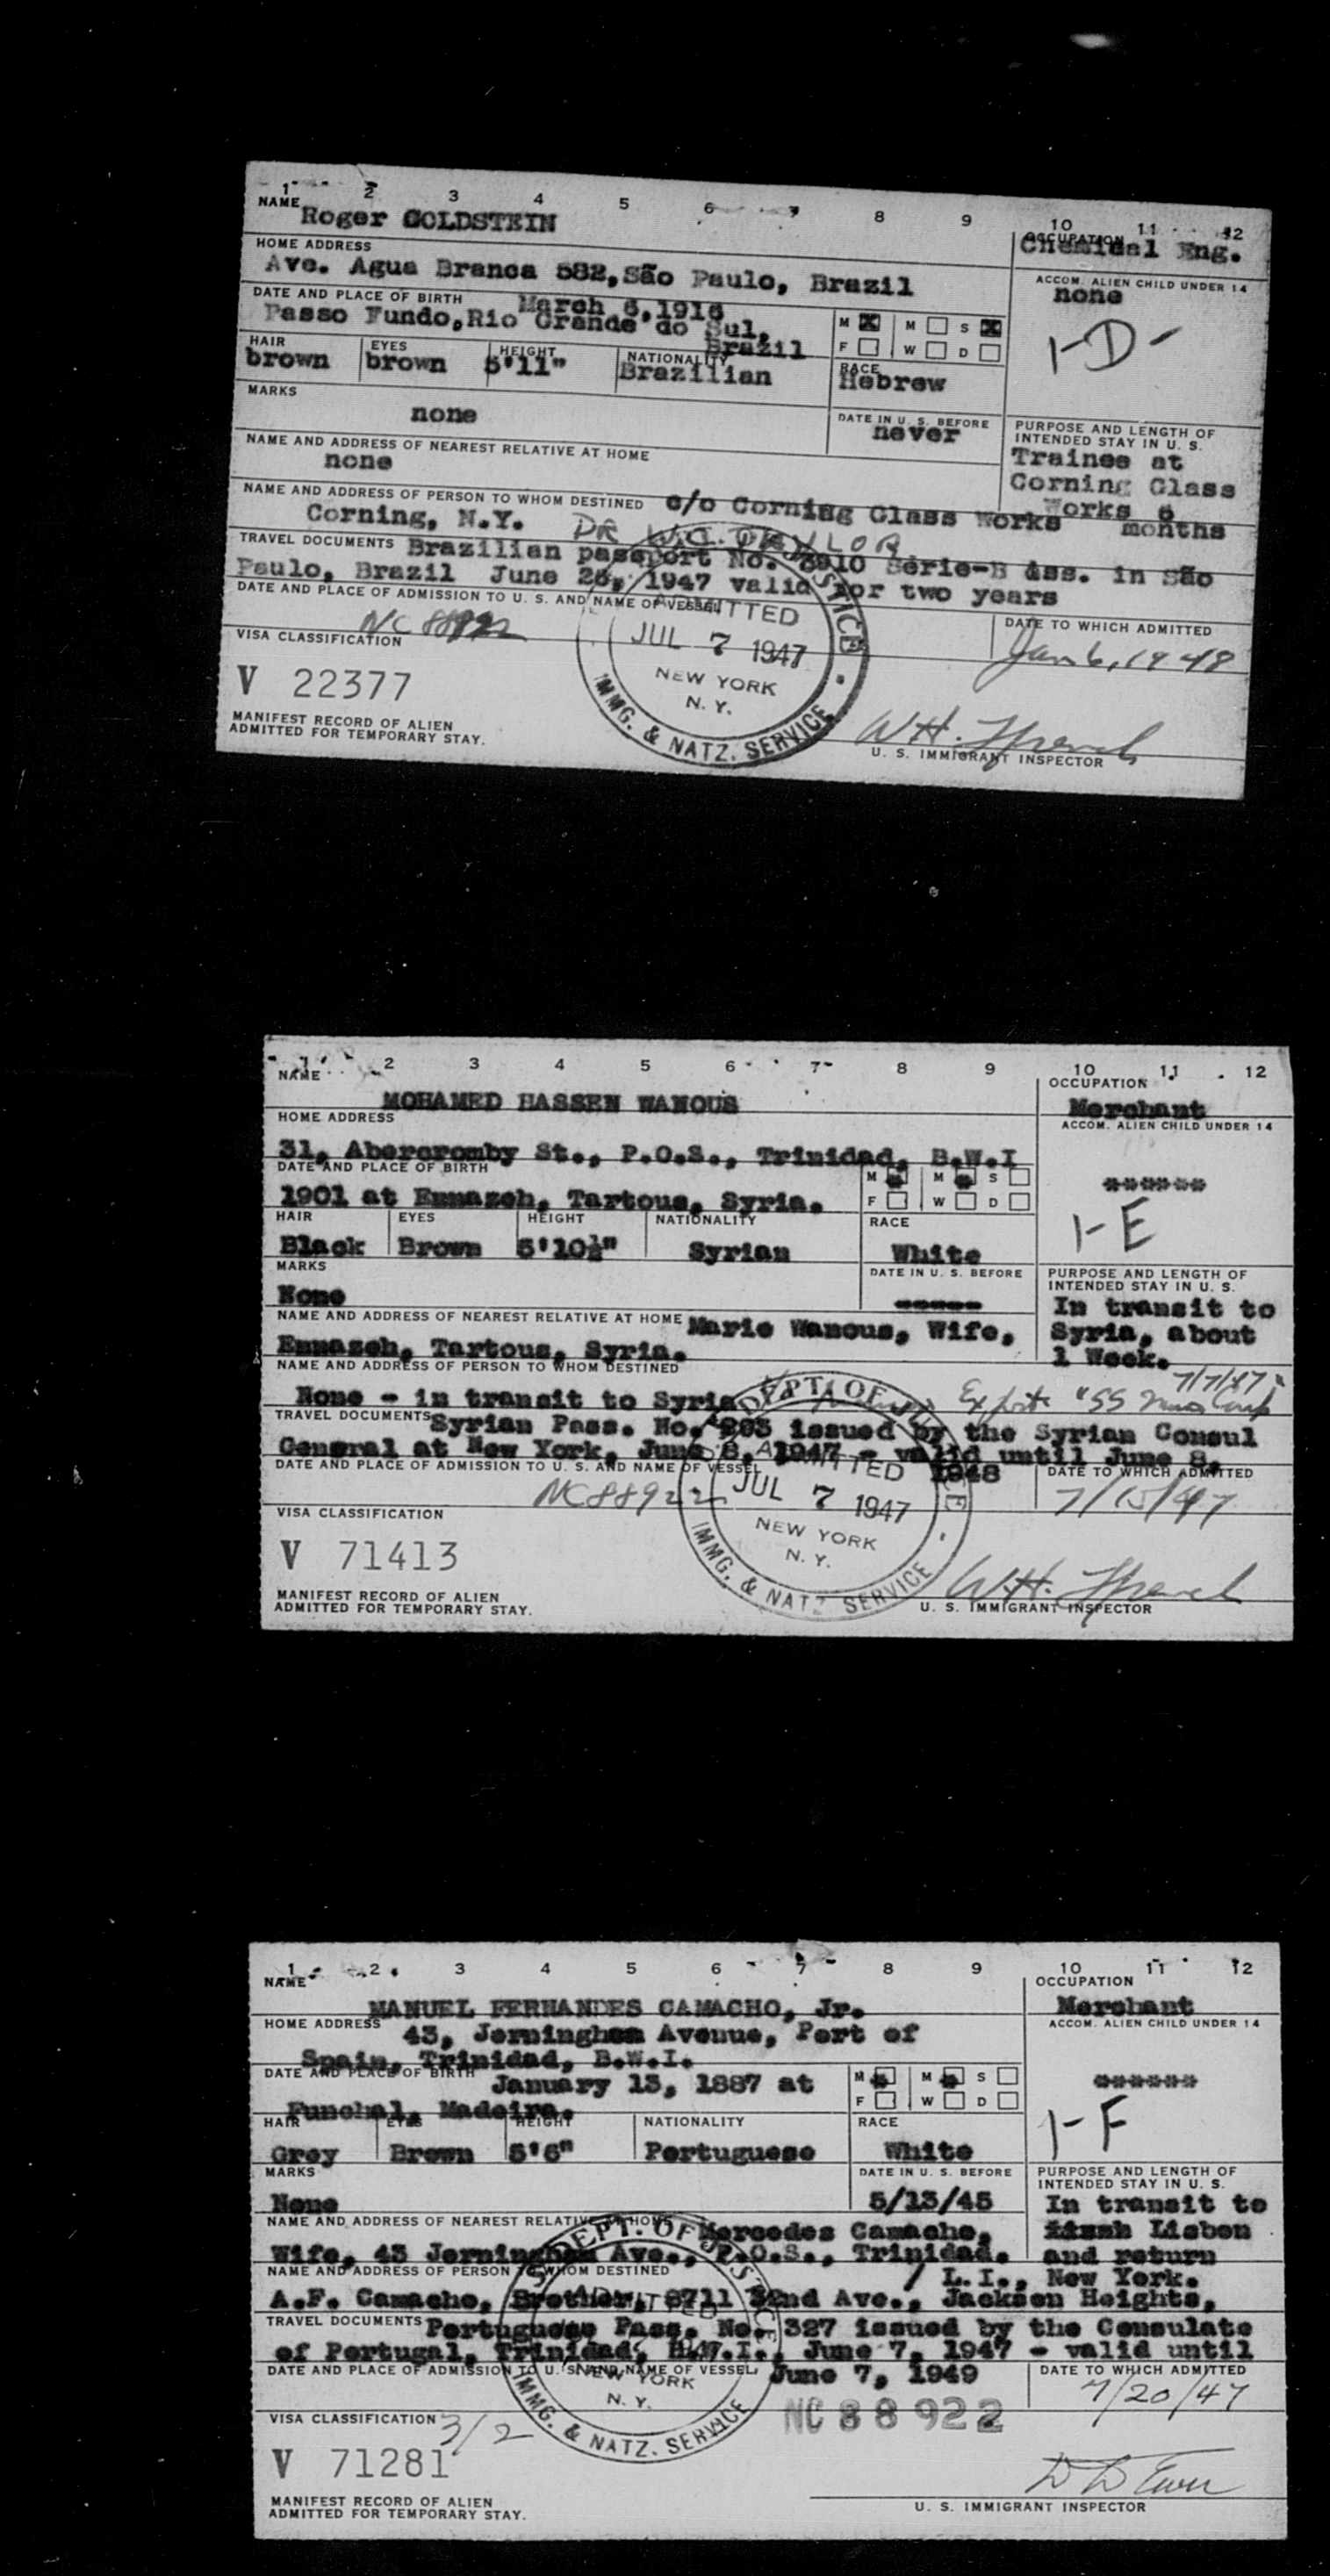 1 2 3 4 5 6 7 8 9 10 11 12
NAME Roger GOLDSTEIN
OCCUPATION Chemical Eng.
HOME ADDRESS
Ave. Agua Branca 582, São Paulo, Brazil
ACCOM. ALIEN CHILD UNDER 14
none
DATE AND PLACE OF BIRTH March 6, 1916
Passo Fundo, Rio Grande do Sul,
Brazil
M X M S X
F W D
1-D-
HAIR EYES HEIGHT NATIONALITY RACE
brown brown 5'11" Brazilian Hebrew
MARKS
none
DATE IN U. S. BEFORE
never
PURPOSE AND LENGTH OF
INTENDED STAY IN U. S.
Trainee at
Corning Glass
Works 6
months
NAME AND ADDRESS OF NEAREST RELATIVE AT HOME
none
NAME AND ADDRESS OF PERSON TO WHOM DESTINED c/o Corning Glass Works
Corning, N.Y. DR W.C. TAYLOR
TRAVEL DOCUMENTS Brazilian passport No. Série-B iss. in São
Paulo, Brazil June 1947 valid for two years
DATE AND PLACE OF ADMISSION TO U. S. AND NAME OF VESSEL
NC 88922
ADMITTED
JUL 7 1947
NEW YORK
N. Y.
IMMG. & NATZ. SERVICE
DATE TO WHICH ADMITTED
Jan 6, 1948
VISA CLASSIFICATION
V 22377
MANIFEST RECORD OF ALIEN
ADMITTED FOR TEMPORARY STAY.
U. S. IMMIGRANT INSPECTOR
1 2 3 4 5 6 7 8 9 10 11 12
NAME
MOHAMED HASSEN WANOUS
OCCUPATION
Merchant
HOME ADDRESS
31, Abercromby St., P.O.S., Trinidad, B.W.I
ACCOM. ALIEN CHILD UNDER 14
******
DATE AND PLACE OF BIRTH
1901 at Emmazeh, Tartous, Syria.
M M S
F W D
1-E
HAIR EYES HEIGHT NATIONALITY RACE
Black Brown 5'10½" Syrian White
MARKS
None
DATE IN U. S. BEFORE
-----
PURPOSE AND LENGTH OF
INTENDED STAY IN U. S.
In transit to
Syria, about
1 Week.
NAME AND ADDRESS OF NEAREST RELATIVE AT HOME Marie Wanous, Wife,
Emmazeh, Tartous, Syria.
NAME AND ADDRESS OF PERSON TO WHOM DESTINED
7/7/47
None - in transit to Syria
TRAVEL DOCUMENTS Syrian Pass. No. issued by the Syrian Consul
General at New York, June 8, 1947 - valid until June 8,
1948
DATE AND PLACE OF ADMISSION TO U. S. AND NAME OF VESSEL
NC88922
DEPT. OF JUSTICE
ADMITTED
JUL 7 1947
NEW YORK
N. Y.
IMMG. & NATZ. SERVICE
DATE TO WHICH ADMITTED
7/15/47
VISA CLASSIFICATION
V 71413
MANIFEST RECORD OF ALIEN
ADMITTED FOR TEMPORARY STAY.
U. S. IMMIGRANT INSPECTOR
1 2 3 4 5 6 7 8 9 10 11 12
NAME
MANUEL FERNANDES CAMACHO, Jr.
OCCUPATION
Merchant
HOME ADDRESS 43, Jerningham Avenue, Port of
Spain, Trinidad, B.W.I.
ACCOM. ALIEN CHILD UNDER 14
******
DATE AND PLACE OF BIRTH January 13, 1887 at
Funchal, Madeira.
M M S
F W D
1-F
HAIR EYES HEIGHT NATIONALITY RACE
Grey Brown 5'6" Portuguese White
MARKS
None
DATE IN U. S. BEFORE
5/13/45
PURPOSE AND LENGTH OF
INTENDED STAY IN U. S.
In transit to
Lisbon
and return
NAME AND ADDRESS OF NEAREST RELATIVE AT HOME Mercedes Camacho,
Wife, 43 Jerningham Ave., P.O.S., Trinidad.
NAME AND ADDRESS OF PERSON TO WHOM DESTINED / L.I., New York.
A.F. Camacho, Brother, 8711 32nd Ave., Jackson Heights,
TRAVEL DOCUMENTS Portuguese Pass. No. 327 issued by the Consulate
of Portugal, Trinidad, B.W.I., June 7, 1947 - valid until
June 7, 1949
DATE AND PLACE OF ADMISSION TO U. S. AND NAME OF VESSEL
NC 88922
DEPT. OF JUSTICE
ADMITTED
NEW YORK
N. Y.
IMMG. & NATZ. SERVICE
DATE TO WHICH ADMITTED
7/20/47
VISA CLASSIFICATION 3/2
V 71281
MANIFEST RECORD OF ALIEN
ADMITTED FOR TEMPORARY STAY.
U. S. IMMIGRANT INSPECTOR